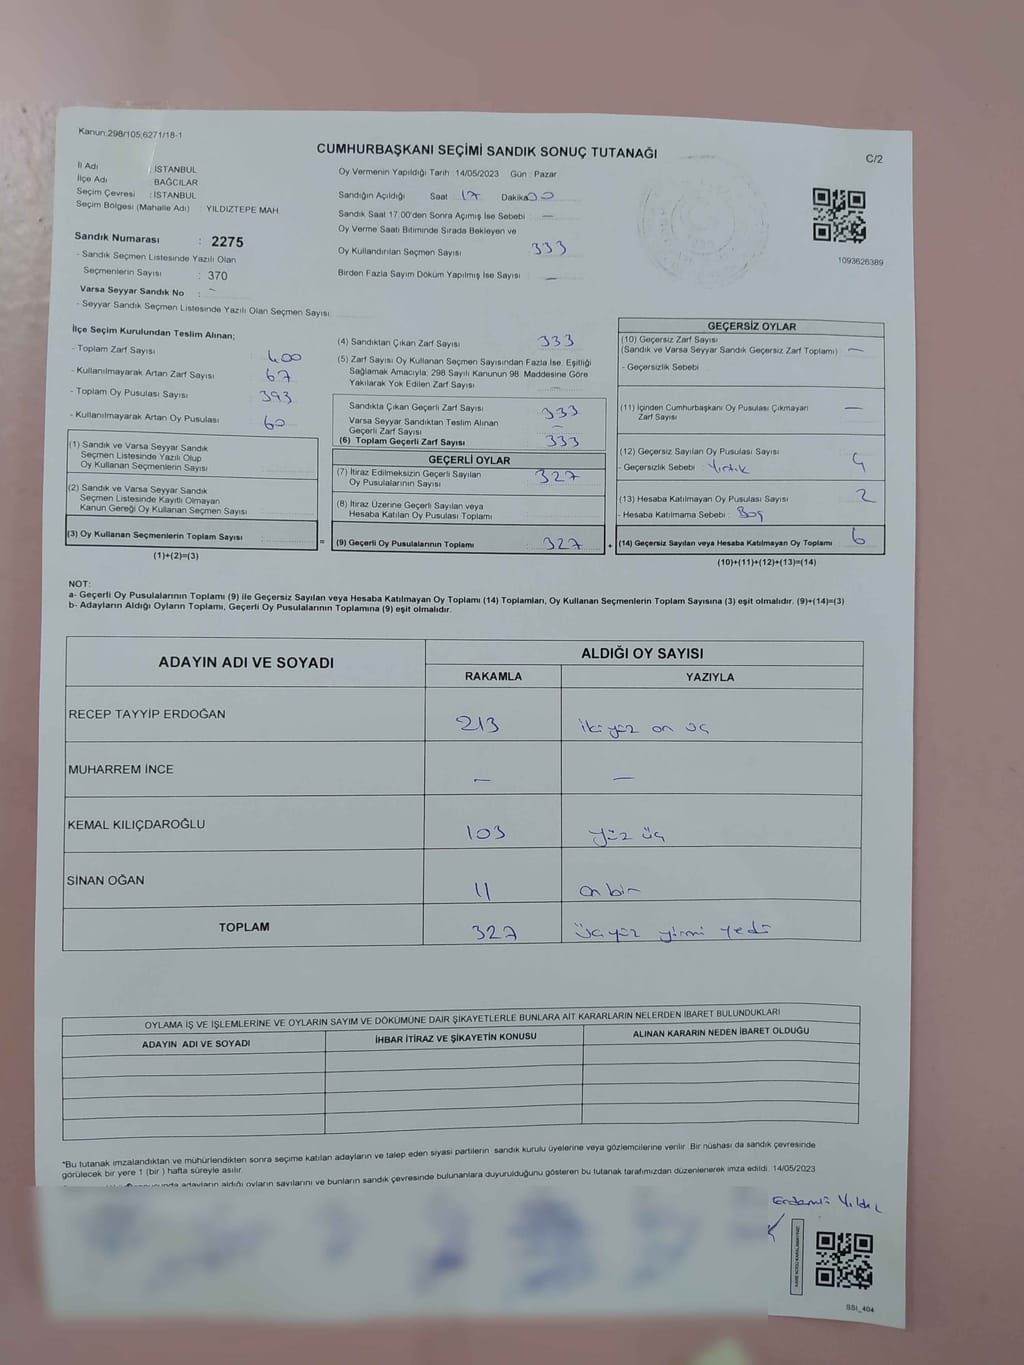 Kanun:298/105;6271/18-1
CUMHURBAŞKANI SEÇİMİ SANDIK SONUÇ TUTANAĞI
C/2
İl Adı : İSTANBUL
İlçe Adı : BAĞCILAR
Seçim Çevresi : İSTANBUL
Seçim Bölgesi (Mahalle Adı) : YILDIZTEPE MAH.
Oy Vermenin Yapıldığı Tarih : 14/05/2023 Gün : Pazar
Sandığın Açıldığı Saat 17 Dakika 00
Sandık Saat 17.00'den Sonra Açımış İse Sebebi : —
Oy Verme Saati Bitiminde Sırada Bekleyen ve
Oy Kullandırılan Seçmen Sayısı : 333
Birden Fazla Sayım Döküm Yapılmış İse Sayısı : —
1093626389
Sandık Numarası : 2275
- Sandık Seçmen Listesinde Yazılı Olan
Seçmenlerin Sayısı : 370
Varsa Seyyar Sandık No : -
- Seyyar Sandık Seçmen Listesinde Yazılı Olan Seçmen Sayısı:
İlçe Seçim Kurulundan Teslim Alınan;
- Toplam Zarf Sayısı 400
- Kullanılmayarak Artan Zarf Sayısı 67
- Toplam Oy Pusulası Sayısı 393
- Kullanılmayarak Artan Oy Pusulası 60
(1) Sandık ve Varsa Seyyar Sandık
Seçmen Listesinde Yazılı Olup
Oy Kullanan Seçmenlerin Sayısı
(2) Sandık ve Varsa Seyyar Sandık
Seçmen Listesinde Kayıtlı Olmayan
Kanun Gereği Oy Kullanan Seçmen Sayısı
(3) Oy Kullanan Seçmenlerin Toplam Sayısı
(1)+(2)=(3)
=
(4) Sandıktan Çıkan Zarf Sayısı 333
(5) Zarf Sayısı Oy Kullanan Seçmen Sayısından Fazla İse, Eşitliği
Sağlamak Amacıyla; 298 Sayılı Kanunun 98. Maddesine Göre
Yakılarak Yok Edilen Zarf Sayısı —
Sandıkta Çıkan Geçerli Zarf Sayısı 333
Varsa Seyyar Sandıktan Teslim Alınan
Geçerli Zarf Sayısı —
(6) Toplam Geçerli Zarf Sayısı 333
GEÇERLİ OYLAR
(7) İtiraz Edilmeksizin Geçerli Sayılan
Oy Pusulalarının Sayısı 327
(8) İtiraz Üzerine Geçerli Sayılan veya
Hesaba Katılan Oy Pusulası Toplamı
(9) Geçerli Oy Pusulalarının Toplamı 327
+
GEÇERSİZ OYLAR
(10) Geçersiz Zarf Sayısı
(Sandık ve Varsa Seyyar Sandık Geçersiz Zarf Toplamı) —
- Geçersizlik Sebebi
(11) İçinden Cumhurbaşkanı Oy Pusulası Çıkmayan
Zarf Sayısı —
(12) Geçersiz Sayılan Oy Pusulası Sayısı 4
- Geçersizlik Sebebi : Yırtık
(13) Hesaba Katılmayan Oy Pusulası Sayısı 2
- Hesaba Katılmama Sebebi : Boş
(14) Geçersiz Sayılan veya Hesaba Katılmayan Oy Toplamı 6
(10)+(11)+(12)+(13)=(14)
NOT:
a- Geçerli Oy Pusulalarının Toplamı (9) ile Geçersiz Sayılan veya Hesaba Katılmayan Oy Toplamı (14) Toplamları, Oy Kullanan Seçmenlerin Toplam Sayısına (3) eşit olmalıdır. (9)+(14)=(3)
b- Adayların Aldığı Oyların Toplamı, Geçerli Oy Pusulalarının Toplamına (9) eşit olmalıdır.
ADAYIN ADI VE SOYADI
ALDIĞI OY SAYISI
RAKAMLA YAZIYLA
RECEP TAYYİP ERDOĞAN 213 iki yüz on üç
MUHARREM İNCE — —
KEMAL KILIÇDAROĞLU 103 yüz üç
SİNAN OĞAN 11 on bir
TOPLAM 327 üçyüz yirmi yedi
OYLAMA İŞ VE İŞLEMLERİNE VE OYLARIN SAYIM VE DÖKÜMÜNE DAİR ŞİKAYETLERLE BUNLARA AİT KARARLARIN NELERDEN İBARET BULUNDUKLARI
ADAYIN ADI VE SOYADI İHBAR İTİRAZ VE ŞİKAYETİN KONUSU ALINAN KARARIN NEDEN İBARET OLDUĞU
*Bu tutanak imzalandıktan ve mühürlendikten sonra seçime katılan adayların ve talep eden siyasi partilerin sandık kurulu üyelerine veya gözlemcilerine verilir. Bir nüshası da sandık çevresinde
görülecek bir yere 1 (bir) hafta süreyle asılır.
adayların aldığı oyların sayılarını ve bunların sandık çevresinde bulunanlara duyurulduğunu gösteren bu tutanak tarafımızdan düzenlenerek imza edildi. 14/05/2023
SSI_404